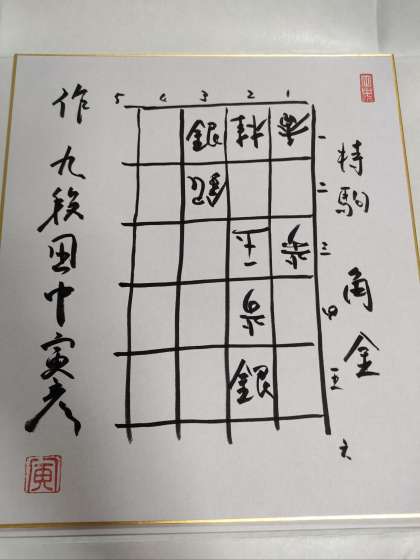 持駒 角金
5 4 3 2 1
銀 桂 香 一
銀 二
玉 歩 三
歩 四
銀 五
六
作 九段田中寅彦
寅